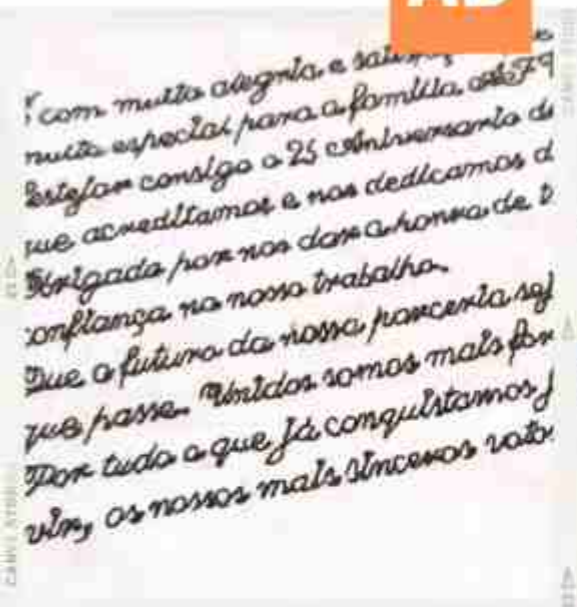 com muita alegria e
muito especial para a família
festejar consigo o 25 Aniversario d
que acreditamos e nos dedicamos d
Obrigada por nos dar a honra de t
confiança no nosso trabalho.
Que o futuro da nossa parceria sej
que passe. Unidos somos mais for
Por tudo o que já conquistamos
vir, os nossos mais sinceros voto
CANVA STORIES